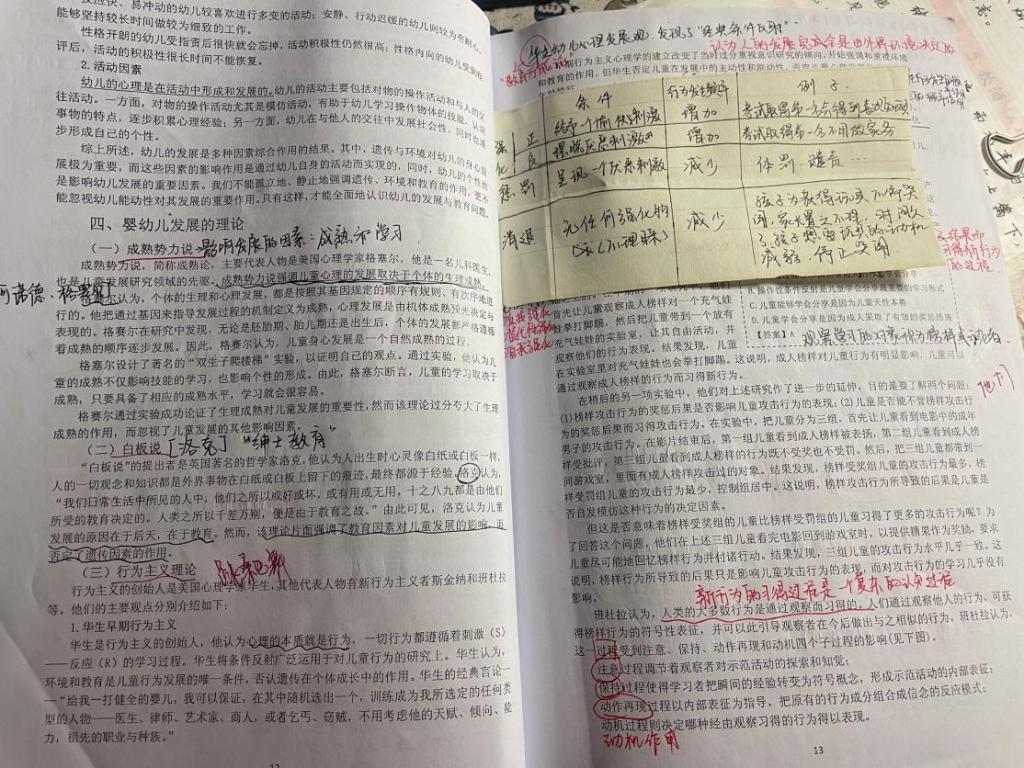 反应快、易冲动的幼儿较喜欢进行多变的活动；安静、行动迟缓的幼儿则较为有耐心，
能够坚持较长时间做较为细致的工作。
性格开朗的幼儿受指责后很快就会忘掉，活动积极性仍然很高；性格内向的幼儿受到批
评后，活动的积极性很长时间不能恢复。
2.活动因素
幼儿的心理是在活动中形成和发展的。幼儿的活动主要包括对物的操作活动和与人的交
往活动。一方面，对物的操作活动尤其是模仿活动，有助于幼儿学习操作物体的技能，认识
事物的特点，逐步积累心理经验；另一方面，幼儿在与他人的交往中发展社会性，同时也逐
步形成自己的个性。
综上所述，幼儿的发展是多种因素综合作用的结果。其中，遗传与环境对幼儿的身心发
展极为重要，而这些因素的影响作用是通过幼儿自身的活动而实现的，同时，幼儿的个性也
是影响幼儿发展的重要因素。我们不能孤立地、静止地强调遗传、环境和教育的作用，更不
能忽视幼儿能动性对其发展的重要作用。只有这样，才能全面地认识幼儿的发展与教育问题。
四、婴幼儿发展的理论
（一）成熟势力说 影响发展的因素：成熟和学习
成熟势力说，简称成熟论，主要代表人物是美国心理学家格塞尔，他是一名儿科医生，
也是儿童发展研究领域的先驱。成熟势力说强调儿童心理的发展取决于个体的生理成熟。
阿诺德·格塞尔
认为，个体的生理和心理发展，都是按照其基因规定的顺序有规则、有次序地进
行的。他把通过基因来指导发展过程的机制定义为成熟，心理发展是由机体成熟预先决定与
表现的。格赛尔在研究中发现，无论是胚胎期、胎儿期还是出生后，个体的发展都严格遵循
着成熟的顺序逐步发展。因此，格赛尔认为，儿童身心发展是一个自然成熟的过程。
格塞尔设计了著名的“双生子爬楼梯”实验，以证明自己的观点。通过实验，他认为儿
童的成熟不仅影响技能的学习，也影响个性的形成。由此，格塞尔断言，儿童的学习取决于
成熟，只要具备了相应的成熟水平，学习就会很容易。
格赛尔通过实验成功论证了生理成熟对儿童发展的重要性，然而该理论过分夸大了生理
成熟的作用，而忽视了儿童发展的其他影响因素。
（二）白板说 [洛克] “绅士教育”
“白板说”的提出者是英国著名的哲学家洛克，他认为人出生时心灵像白纸或白板一样，
人的一切观念和知识都是外界事物在白纸或白板上留下的痕迹，最终都源于经验。洛克认为，
“我们日常生活中所见的人中，他们之所以或好或坏，或有用或无用，十之八九都是由他们
所受的教育决定的。人类之所以千差万别，便是由于教育之故。”由此可见，洛克认为儿童
发展的原因在于后天，在于教育。然而，该理论片面强调了教育因素对儿童发展的影响，而
否定了遗传因素的作用。
（三）行为主义理论
行为主义的创始人是美国心理学家华生，其他代表人物有新行为主义者斯金纳和班杜拉
等。他们的主要观点分别介绍如下：
1.华生早期行为主义
华生是行为主义的创始人，他认为心理的本质就是行为，一切行为都遵循着刺激（S）
——反应（R）的学习过程。华生将条件反射广泛运用于对儿童行为的研究上。华生认为，
环境和教育是儿童行为发展的唯一条件，否认遗传在个体成长中的作用。华生的经典言论—
—“给我一打健全的婴儿，我可以保证，在其中随机选出一个，训练成为我所选定的任何类
型的人物——医生、律师、艺术家、商人，或者乞丐、窃贼，不用考虑他的天赋、倾向、能
力，祖先的职业与种族。”
12
华生幼儿心理发展观，发现了“经典条件反射”
认为人的发展完全是由外界环境决定的
“教育万能论”
期行为主义心理学的建立改变了当时过分重视意识研究的倾向，开始强调和重视环境
和教育的作用，但华生否定儿童在发展中的主动性和能动性，否定
条件 行为发生频率 例子
强化 正 给予一个愉快刺激 增加 考试取得第一名会得到表扬
负 摆脱厌恶刺激 增加 考试取得第一名不用做家务
惩罚 呈现一个厌恶刺激 减少 体罚、谴责……
消退 无任何强化物（不理睬） 减少 孩子为获得玩具不断哭
闹，家长置之不理，时间久
了，孩子想要玩具的动机
减弱，停止哭闹
B. 操作性条件反射是儿童学会分享最重要的学习形式
C. 儿童能够学会分享是因为儿童天性本善
D. 儿童学会分享是因为成人采取了有效的奖惩措施
【答案】A
首先让儿童观察成人榜样对一个充气娃
娃拳打脚踢，然后把儿童带到一个放有
充气娃娃的实验室，让其自由活动，并
观察他们的行为表现。结果发现，儿童
在实验室里对充气娃娃也会拳打脚踢。这说明，成人榜样对儿童行为有明显影响，儿童可以
通过观察成人榜样的行为而习得新行为。
在稍后的另一项实验中，他们对上述研究作了进一步的延伸，目的是要了解两个问题：
(1)榜样攻击行为的奖惩后果是否影响儿童攻击行为的表现；(2)儿童是否能不管榜样攻击行
为的奖惩后果而习得攻击行为。在实验中，把儿童分为三组，首先让儿童看到电影中的成年
男子的攻击行为。在影片结束后，第一组儿童看到成人榜样被表扬，第二组儿童看到成人榜
样受批评，第三组儿童看到成人榜样的行为既不受奖也不受罚。然后，把三组儿童都带到一
间游戏室，里面有成人榜样攻击过的对象。结果发现，榜样受奖组儿童的攻击行为最多，榜
样受罚组儿童的攻击行为最少，控制组居中。这说明，榜样攻击行为所导致的后果是儿童是
否自发模仿这种行为的决定因素。
但这是否意味着榜样受奖组的儿童比榜样受罚组的儿童习得了更多的攻击行为呢？为
了回答这个问题，他们在上述三组儿童看完电影回到游戏室时，以提供糖果作为奖励，要求
儿童尽可能地回忆榜样行为并付诸行动。结果发现，三组儿童的攻击行为水平几乎一致。这
说明，榜样行为所导致的后果只是影响儿童攻击行为的表现，而对攻击行为的学习几乎没有
影响。
新行为的习得过程是一个复杂的认知过程
班杜拉认为，人类的大多数行为是通过观察而习得的。人们通过观察他人的行为，可获
得榜样行为的符号性表征，并可以此引导观察者在今后做出与之相似的行为。班杜拉认为，
这一过程受到注意、保持、动作再现和动机四个子过程的影响(见下图)。
注意过程调节着观察者对示范活动的探索和知觉；
保持过程使得学习者把瞬间的经验转变为符号概念，形成示范活动的内部表征；
动作再现过程以内部表征为指导，把原有的行为成分组合成信念的反应模式；
动机过程则决定哪种经由观察习得的行为得以表现。
动机作用
13